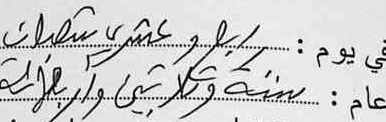 في يوم : رابع و عشري شعبان
عام : ستة وثلاثين وأربعمائة